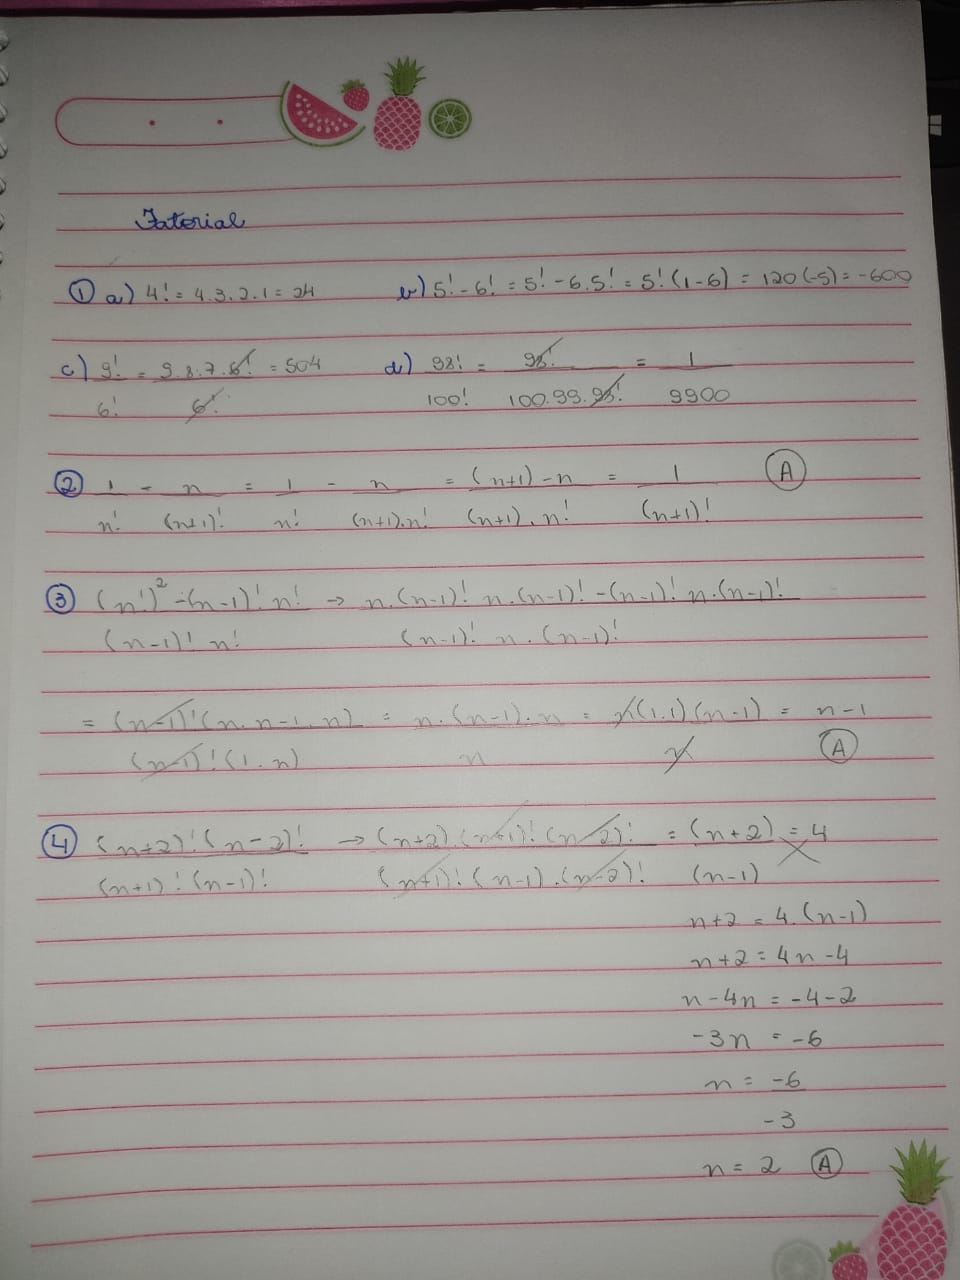 Fatorial
① a) 4! = 4.3.2.1 = 24 b) 5! - 6! = 5! - 6.5! = 5! (1-6) = 120 (-5) = -600
c) 9! = 9.8.7.6! = 504 d) 98! = 98! = 1
6! 6! 100! 100.99.98! 9900
② 1 - n = 1 - n = (n+1) - n = 1 Ⓐ
n! (n+1)! n! (n+1).n! (n+1).n! (n+1)!
③ (n!)² - (n-1)! n! → n.(n-1)! n.(n-1)! - (n-1)! n.(n-1)!
(n-1)! n! (n-1)! n.(n-1)!
= (n-1)! (n.n-1.n) = n.(n-1).n = n(1.1)(n-1) = n-1
(n-1)! (1.n) n n Ⓐ
④ (n+2)! (n-2)! → (n+2).(n+1)! (n-2)! = (n+2) = 4
(n+1)! (n-1)! (n+1)! (n-1).(n-2)! (n-1)
n+2 = 4.(n-1)
n+2 = 4n-4
n-4n = -4-2
-3n = -6
n = -6
-3
n = 2 Ⓐ